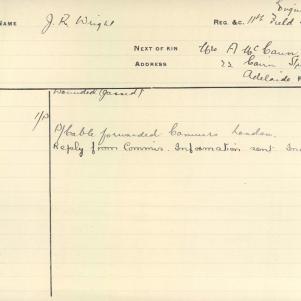 Engin
NAME J. R. Wright REG. &C. 11th Field
NEXT OF KIN Mrs A McCann
ADDRESS 22 Cairn St
Adelaide
Wounded (Gassed)
P/Cable forwarded Commrs London.
Reply from Commrs. Information sent